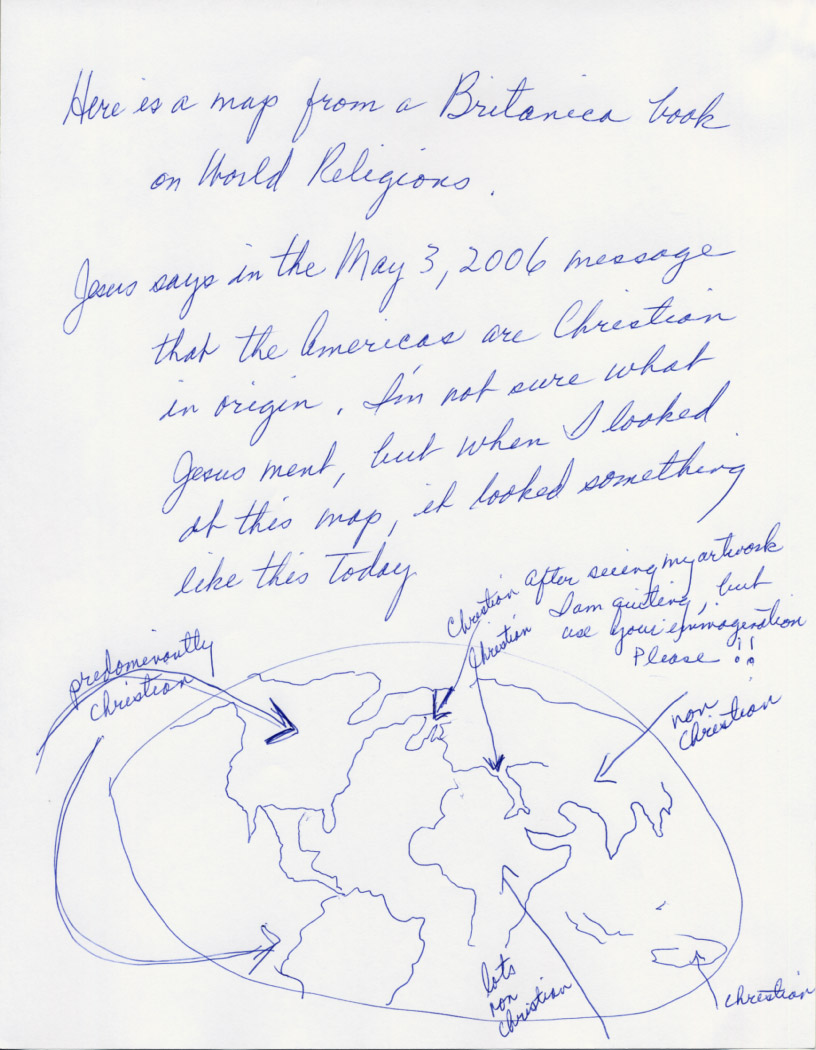 Here is a map from a Britanica book
on World Religions.
Jesus says in the May 3, 2006 message
that the Americas are Christian
in origin. I'm not sure what
Jesus ment, but when I looked
at this map, it looked something
like this today
Christian
Christian
after seeing my artwork
I am quiting, but
use your immagination
Please !!
predominantly
Christian
non
Christian
lots
non
Christian
Christian